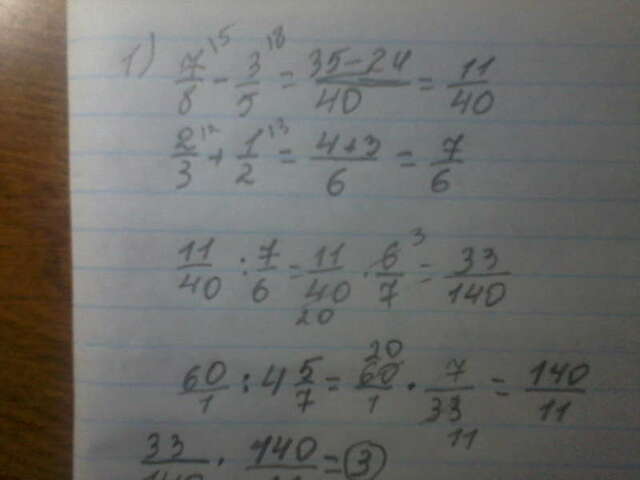 1) 7/8 \5 - 3/5 \8 = 35-24/40 = 11/40
2/3 \2 + 1/2 \3 = 4+3/6 = 7/6
11/40 : 7/6 = 11/40 20 · 6/7 3 = 33/140
60/1 : 4 5/7 = 20 60/1 · 7/33 11 = 140/11
33/140 · 140/11 = 3